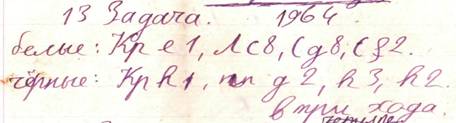 13 Задача. 1964
белые: Кр e1, Л c8, С g8, С f2.
чёрные: Кр h1, пп g2, h3, h2.
в три хода.